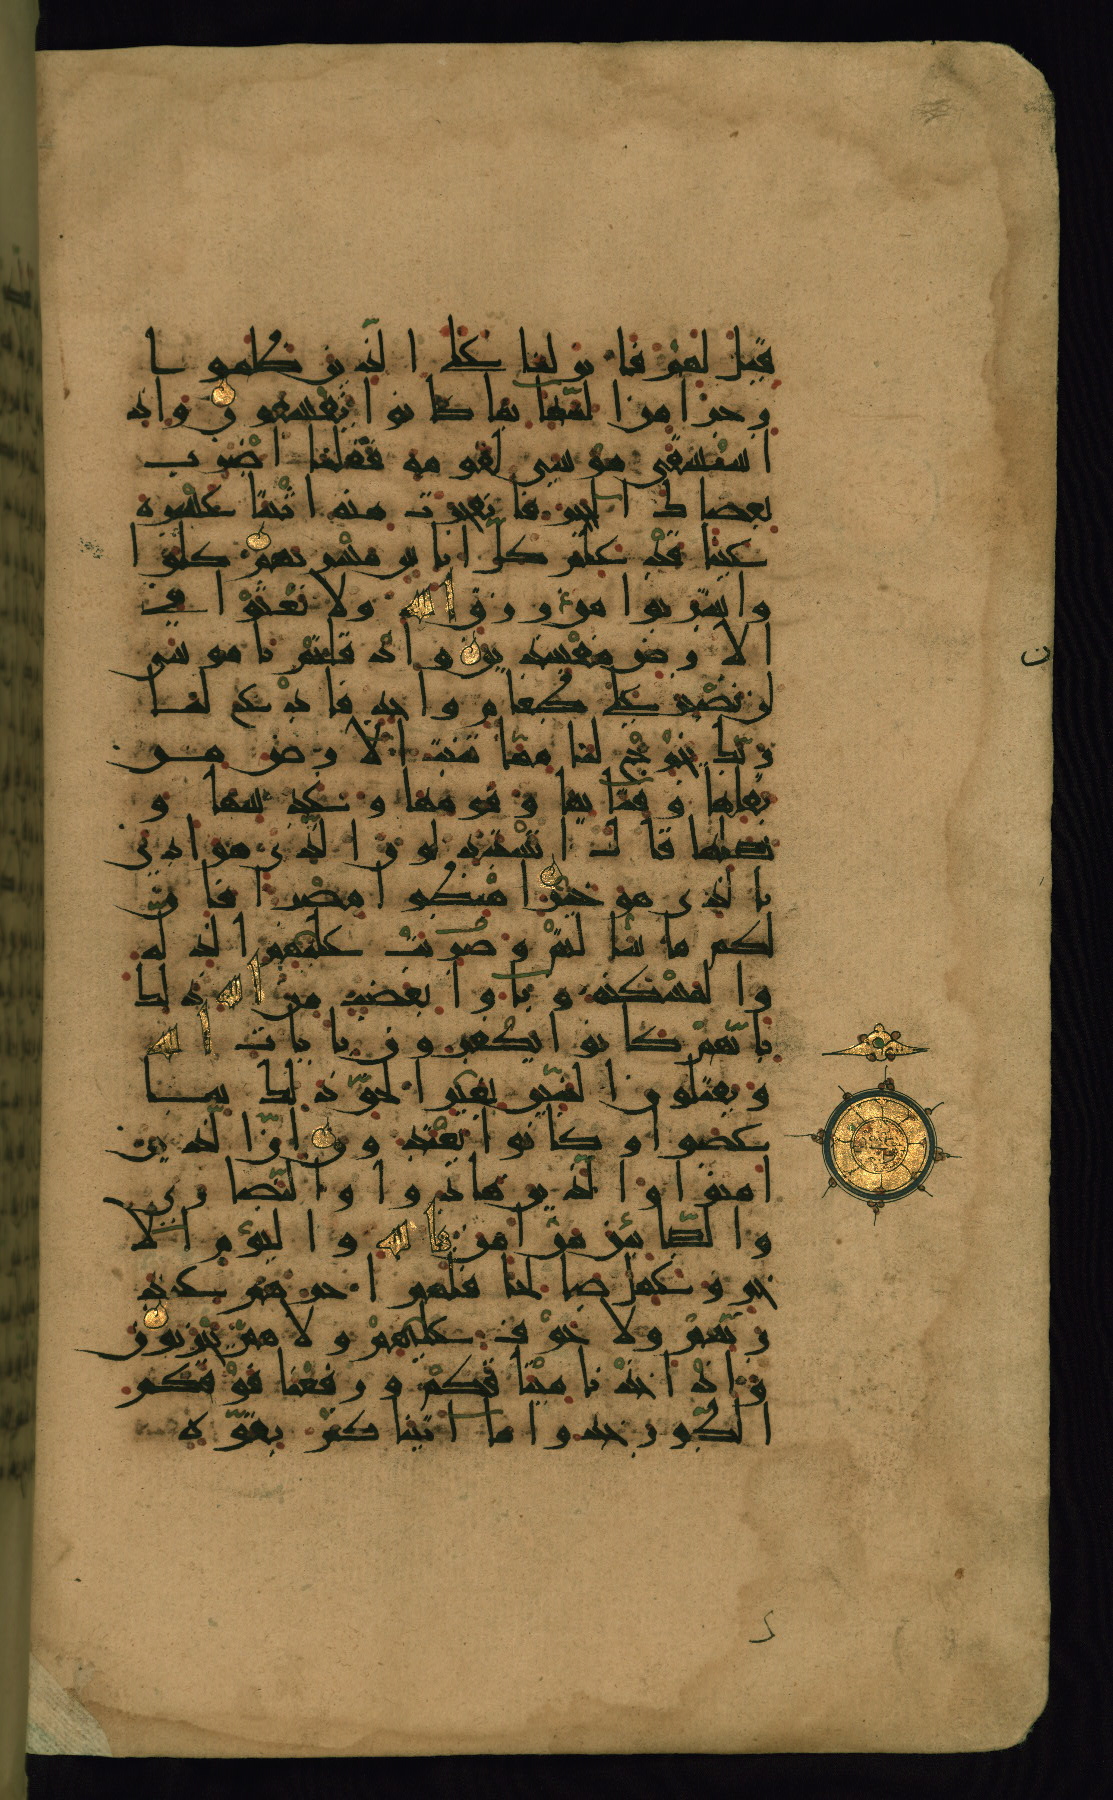 قيل لهم فانزلنا على الذين ظلموا
رجزا من السما بما كانوا يفسقون واذ
استسقى موسى لقومه فقلنا اضرب
بعصاك الحجر فانفجرت منه اثنتا عشرة
عينا قد علم كل اناس مشربهم كلوا
واشربوا من رزق الله ولا تعثوا في
الارض مفسدين واذ قلتم ياموسى
لن نصبر على طعام واحد فادع لنا
ربك يخرج لنا مما تنبت الارض من
بقلها وقثايها وفومها وعدسها و
بصلها قال اتستبدلون الذى هو ادنى
بالذى هو خير اهبطوا مصرا فان
لكم ما سالتم وضربت عليهم الذلة
والمسكنة وباوا بغضب من الله ذلك
بانهم كانوا يكفرون بايات الله
ويقتلون النبيين بغير الحق ذلك بما
عصوا وكانوا يعتدون ان الذين
امنوا والذين هادوا والنصارى
والصابين من امن بالله واليوم الا
خر وعمل صالحا فلهم اجرهم عند
ربهم ولا خوف عليهم ولا هم يحزنون
واذ اخذنا ميثاقكم ورفعنا فوقكم
الطور خذوا ما اتيناكم بقوة